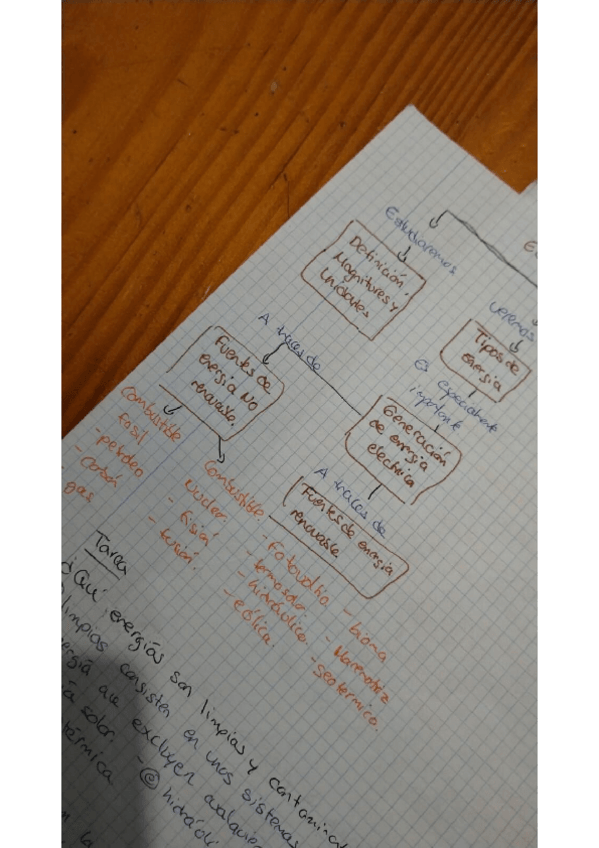 Estudiaremos
Definición,
Magnitudes y
Unidades
veremos
Tipos de
energía
es especialmente
importante
Generación
de energía
eléctrica
A traces de
Fuentes de
energía NO
renovable.
Combustible
fósil
- petróleo
- Carbón
gas
Combustible
nuclear.
- fisión
- fusión.
A traces de
Fuentes de energía
renovable
- fotovoltia
- termosolar
- hidráulica.
- eólica.
- bioma
- Maremotriz
- geotermica.
Tarea
¿Qué energías son limpias y contaminant
limpias consisten en unos sistemas
ergía que excluyen cualquier
a solar. - @ hidráuli
térmica